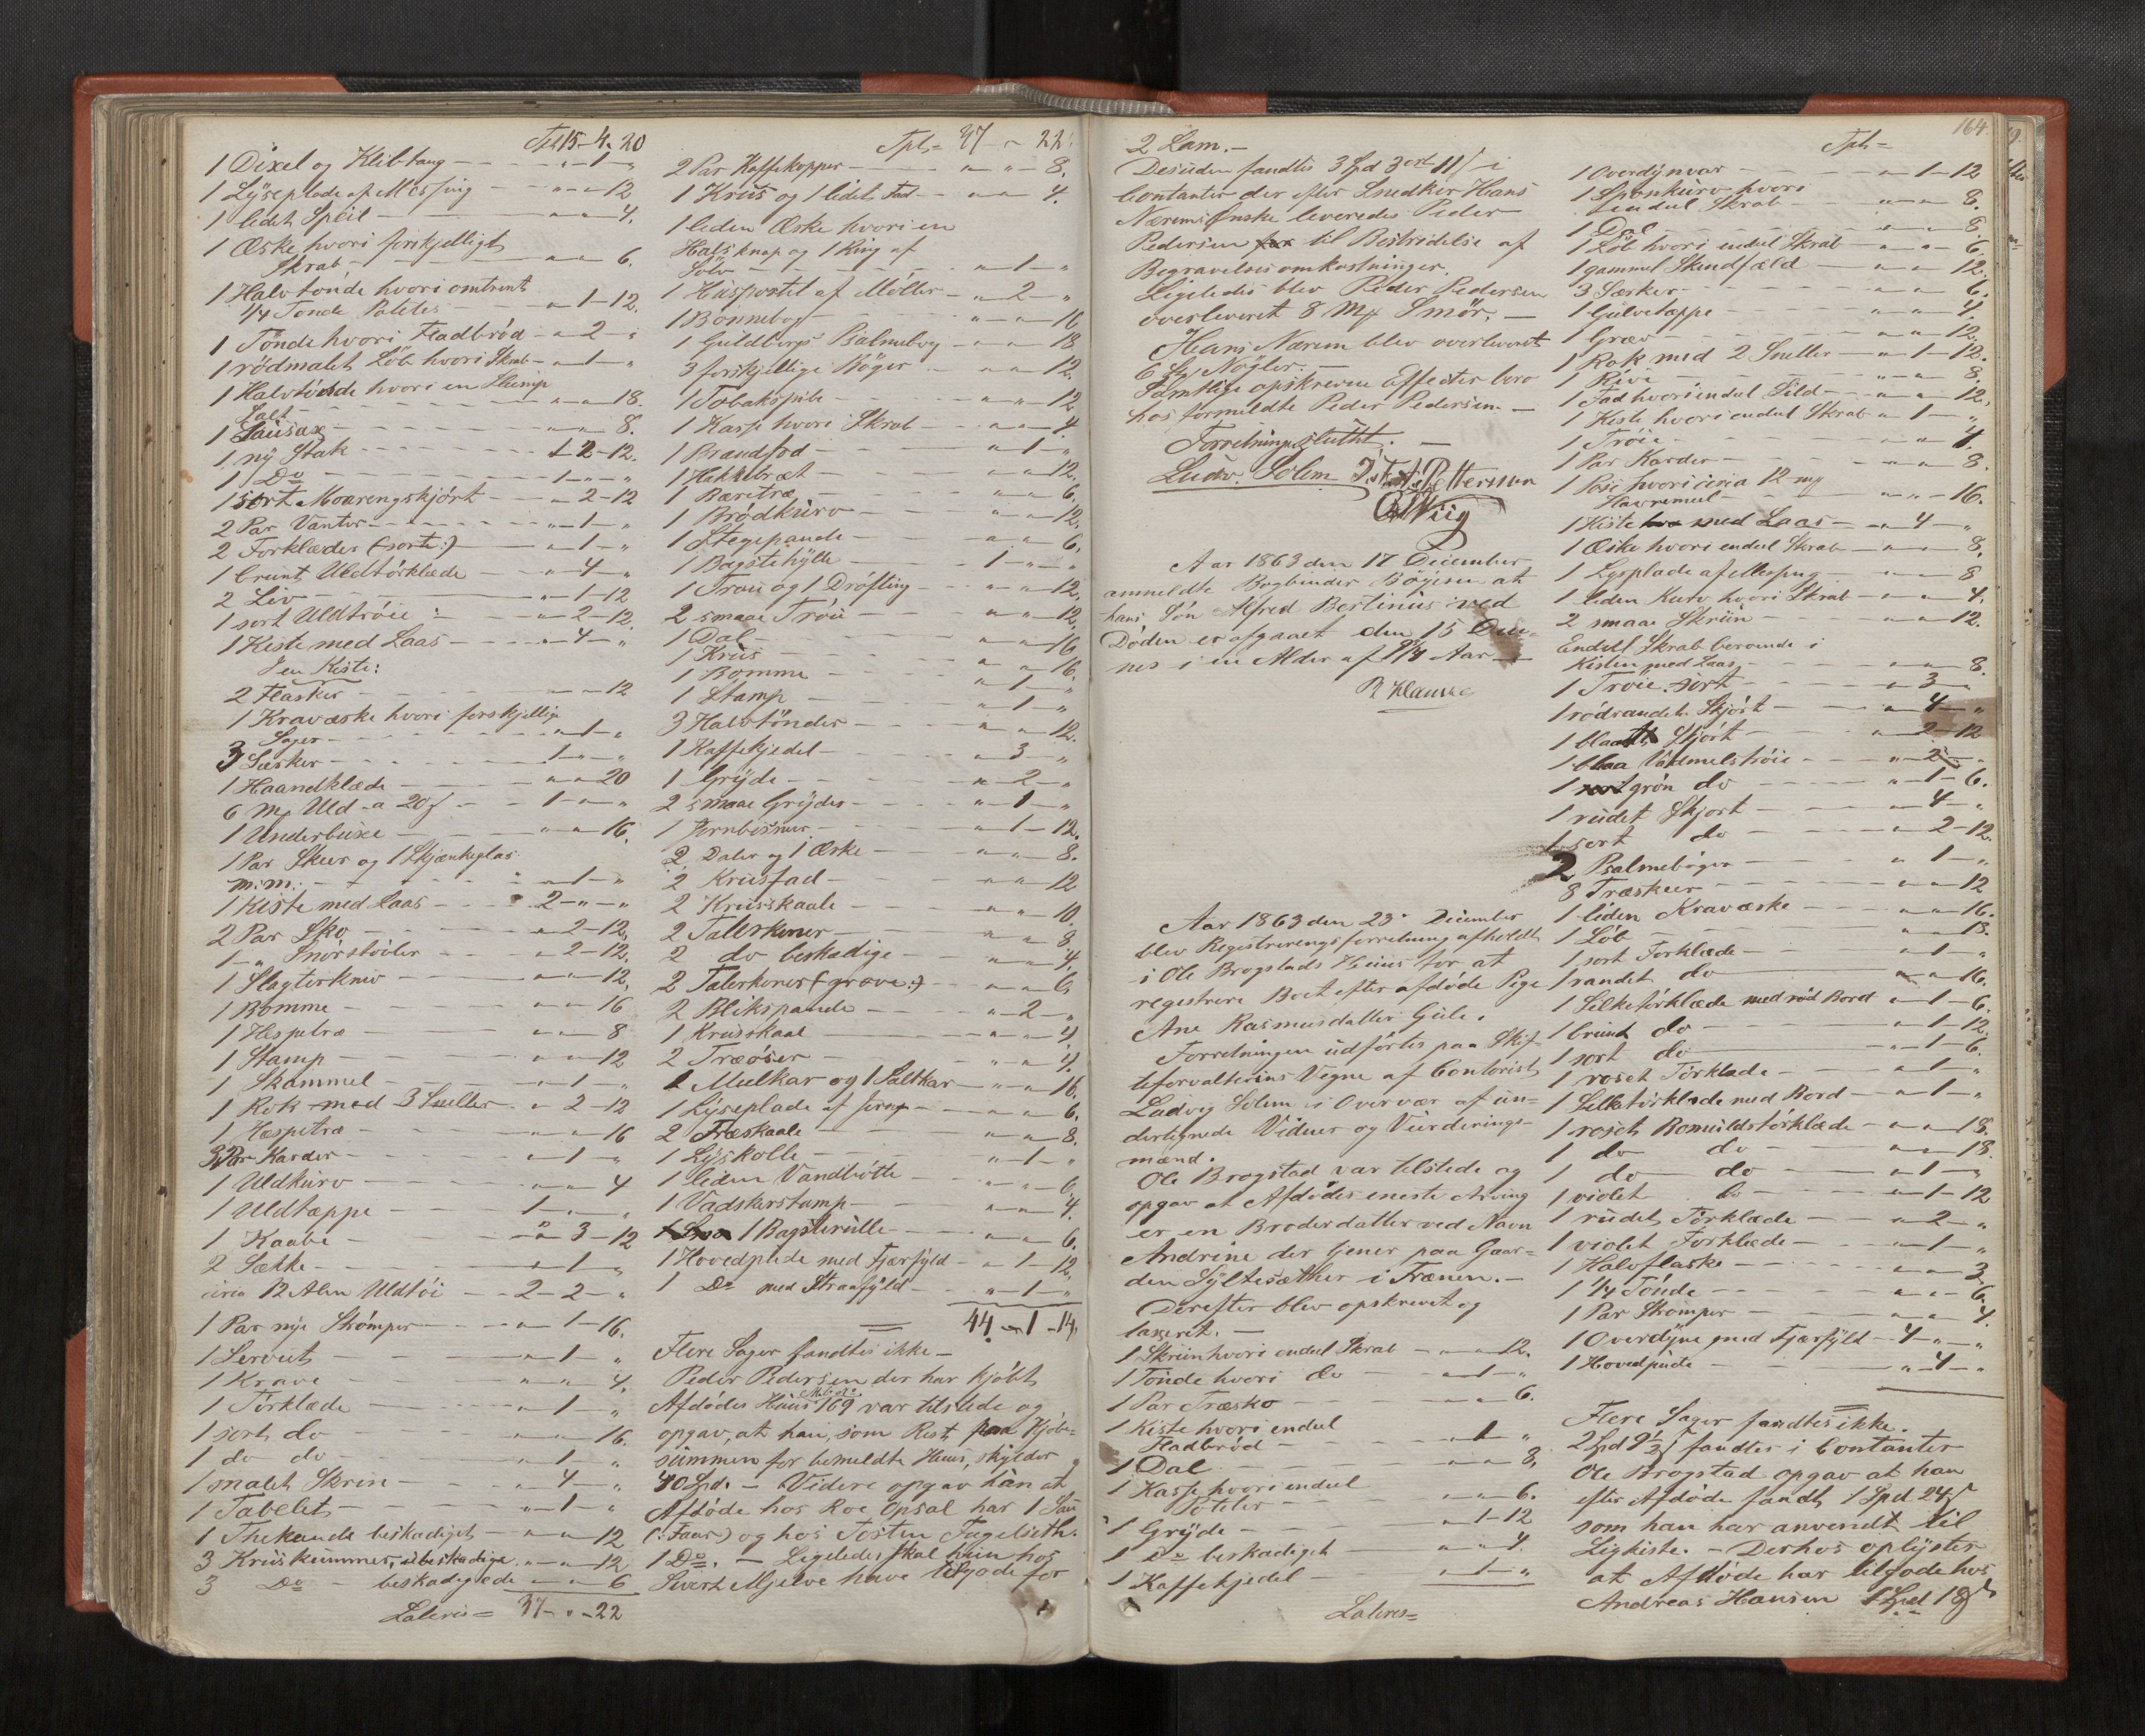 Tpl 15-4-20
1 Dixel og Klibtang - " - 1 - "
1 Lyseplade af Messing - " - " - 12
1 lidet Speil - " - " - 4.
1 Æske hvori forskjelligt
Skrab - " - " - 6.
1 Halvtønde hvori omtrent
1/4 Tønde Potetes - " - 1 - 12.
1 Tønde hvori Fladbrød - " - 2 - "
1 rödmalet Löb hvori Skrab - " - 1 - "
1 Halvtönde hvori en Slump
Salt - " - " - 18.
1 Sausax - " - " - 8.
1 ny Stak - 1 - 2 - 12.
1 Do - 1 - " - "
1 sort Moarengskjört - " - 2 - 12
2 Par Vanter - " - 1 - "
2 Forklæder (sorte:) - " - 1 - "
1 brunt Uldtörklæde - " - 4 - "
2 Liv - " - 1 - 12
1 sort Uldtröie - " - 2 - 12.
1 Kiste med Laas - " - 4 - "
I en Kiste:
2 Flasker - " - " - 12
1 Kravæske hvori forskjellige
Sager - " - 1 - "
3 Særker - 1 - " - "
1 Haandklæde - " - " - 20
6 Mk Uld a 20 s - 1 - " - "
1 Underbuxe - " - " - 16.
1 Par Skeer og 1 Skjænkeglas
m: m: - " - 1 - "
1 Kiste med Laas - 2 - " - "
2 Par Sko - " - 2 - 12.
1 " Snörstövler - " - 2 - 12.
1 Slagterkniv - " - " - 12.
1 Bomme - " - " - 16
1 Hesptræ - " - " - 8
1 Stamp - " - " - 12
1 Skammel - " - 1 - "
1 Rok med 3 Sneller - " - 2 - 12
1 Hæspetræ - " - " - 16
3 Par Karder - " - 1 - "
1 Uldkurv - " - " - 4
1 Uldtæppe - 1 - " - "
1 Kaabe - " - 3 - 12
2 Sække - " - 1 - "
circa 12 Alen Uldtöi - 2 - 2 - "
1 Par nye Strömper - " - 1 - 16.
1 Serviet - " - 1 - "
1 Krave - " - " - 4.
1 Törklæde - " - 1 - "
1 sort do - " - " - 16.
1 do do - " - 1 - "
1 malet Skrin - " - 4 - "
1 Tabelet - " - 1 - "
1 Thekande beskadiget - " - " - 12
3 Kruskummer, ubeskadige - " - " - 12
3 Do - beskadigede - " - " - 6
Lateris = 37 - " - 22
Tpl = 37 - " - 22
2 Par Kaffekopper - " - " - 8.
1 Krus og 1 lidet Fad - " - " - 4.
1 liden Æske hvori en
Halsknap og 1 Ring af
Sölv - " - 1 - "
1 Huspostil af Möller - " - 2 - "
1 Bönnebog - " - " - 16
1 Guldbergs Psalmebog - " - " - 18
3 forskjellige Böger - " - " - 12.
1 Tobakspibe - " - " - 12
1 Kasse hvori Skrab - " - " - 4.
1 Brandfod - " - 1 - "
1 Hakkebræt - " - " - 12.
1 Bæretræ - " - " - 6.
1 Brödkurv - " - " - 12.
1 Stegepande - " - " - 6.
1 Bagstehylle - 1 - " - "
1 Trau og 1 Dröfling - " - " - 12.
2 smaae Tröie - " - " - 12.
1 Dal - " - " - 16
1 Krus - " - " - 16.
1 Bomme - " - 1 - "
1 Stamp - " - 1 - "
3 Halvtönder - " - " - 12.
1 Kaffekjedel - " - 3 - "
1 Gryde - " - 2 - "
2 smaae Gryder - " - 1 - "
1 Jernbismer - " - 1 - 12.
2 Daler og 1 Æske - " - " - 8.
2 Krusfad - " - " - 12
2 Krusskaale - " - " - 10.
2 Tallerkener - " - " - 8.
2 do beskadige - " - " - 4.
2 Talerkener (grove:) - " - " - 6.
2 Blikspande - " - 2 - "
1 Krusskaal - " - " - 4
2 Træöser - " - " - 4.
1 Meelkar og 1 Saltkar - " - " - 16.
1 Lyseplade af Jern - " - " - 6.
2 Træskaale - " - " - 8.
1 Lyskolle - " - 1 - "
1 liden Vandbötte - " - " - 6
1 Vadskerstamp - " - " - 4.
1 Bagsterulle - " - " - 6.
1 Hovedpude med Fjærfyld - " - 1 - 12.
1 Do med Straafyld - " - 1 - "
44 - 1 - 14.
Flere Sager fandtes ikke -
Peder Pedersen der har kjöbt
Afdödes Huus 169 var tilstede og
opgav, at han, som Rest paa Kjöbe-
summen for bemeldte Huus, skylder
40 Spd. - Videre opgav han at
Afdöde hos Roe Opsal har 1 Sau
(: Faar) og hos Tosten Fagelseth.
1 Do. - Ligeledes skal hun hos
Sivert Mjelve have tilgode for
164.
2 Lam. -
Desuden fandtes 3 Spd 3 ort 11 s i
Contanter der efter Snedker Hans
Nærems Ønske leveredes Peder
Pedersen til Bestridelse af
Begravelsesomkostninger.
Ligeledes blev Peder Pedersen
overleveret 8 Mk Smör. -
Hans Nærem blev overleveret
6 stk Nögler. -
Samtlige opskrevne Effecter bero
hos formeldte Peder Pedersen. -
Forretningen sluttet. -
Ludv. Solem Pettersson
Wiig
Aar 1863 den 17 December
anmeldte Bogbinder Böyesen at
hans Sön Alfred Bertinus ved
Döden er afgaaet den 15 Deus
nes i en Alder af 9/4 Aar -
Aar 1863 den 23. December
blev Registreringsforretning afholdt
i Ole Brogstads Huus for at
registrere Boet efter afdöde Pige
Ane Rasmusdatter Giile.
Forretningen udförtes paa Skif-
teforvalterens Vegne af Contorist
Ludvig Solem i Overvær af un-
dertegnede Vidner og Vurderings-
mænd.
Ole Brogstad var tilstede og
opgav at Afdödes eneste Arving
er en Broderdatter ved Navn
Andrine der tjener paa Gaar-
den Syltesæther i Frænen. -
Derefter blev opskrevet og
taxeret. -
1 Skrin hvori endeel Skrab - " - " - 12.
1 Tönde hvori do - " - 1 - "
1 Par Træsko - " - " - 6.
1 Kiste hvori endeel
Fladbröd - " - 1 - "
1 Dal - " - " - 8.
1 Kasse hvori endeel
Poteter - " - " - 6.
1 Gryde - " - 1 - 12
1 Do beskadiget - " - " - 4.
1 Kaffekjedel - " - 1 - "
Lateres =
Tpl =
1 Overdynvar - " - 1 - 12
1 Sponkurv hvori
endeel Skrab - " - " - 8.
1 Dal - " - " - 8.
1 Löb hvori endeel Skrab - " - " - 6.
1 gammel Skindfæld - " - " - 12.
3 Særker - " - " - 6.
1 Gulvtæppe - " - " - 4.
1 Græv - " - " - 12.
1 Rok med 2 Sneller - " - 1 - 12.
1 Rive - " - " - 8.
1 Fad hvori endeel Sild - " - " - 12.
1 Kiste hvori endeel Skrab - " - 1 - "
1 Tröie - " - " - 4.
1 Par Karder - " - " - 8.
1 Pose hvori circa 12 mk
Havremeel - " - " - 16.
1 Kiste med Laas - " - 4 - "
1 Æske hvori endeel Skrab - " - " - 8.
1 Lysplade af Messing - " - " - 8
1 liden Kurv hvori Skrab - " - " - 4.
2 smaae Skriin - " - " - 12.
Endeel Skrab beroende i
Kisten med Laas - " - " - 8.
1 Tröie sort - " - 3 - "
1 rödrandet Skjört - " - 4 - "
1 blaat Skjört - " - 2 - 12
1 blaa Vadmelströie - " - 2 - "
1 grön do - " - 1 - 6.
1 rudet Skjört - " - 4 - "
1 sort do - " - 2 - 12.
2 Psalmeböger - " - 1 - "
8 Træskeer - " - " - 12
1 liden Kravæske - " - " - 16.
1 Löb - " - " - 18.
1 sort Forklæde - " - 1 - "
1 randet do - " - " - 16.
1 Silketörklæde med röd Bord - " - 1 - 6.
1 brunt do - " - 1 - 12.
1 sort do - " - 1 - 6.
1 roset Törklæde - " - 1 - "
1 Silketörklæde med Bord - " - 1 - "
1 roset Bomuldstörklæde - " - " - 18.
1 do do - " - " - 18.
1 do do - " - 1 - "
1 violet do - " - 1 - 12
1 rudet Törklæde - " - 2 - "
1 violet Forklæde - " - 1 - "
1 Halvflaske - " - " - 3
1 1/4 Tönde - " - " - 6.
1 Par Strömper - " - " - 4.
1 Overdyne med Fjærfyld - 4 - " - "
1 Hovedpude - " - 4 - "
Flere Sager fandtes ikke.
2 Spd 9 1/2 s fandtes i Contanter
Ole Brogstad opgav at han
efter Afdöde fandt 1 Spd 24 s
som han har anvendt til
Ligkiste. - Derhos oplystes
at Afdöde har tilgode hos
Andreas Hansen 1 Spd 18 s